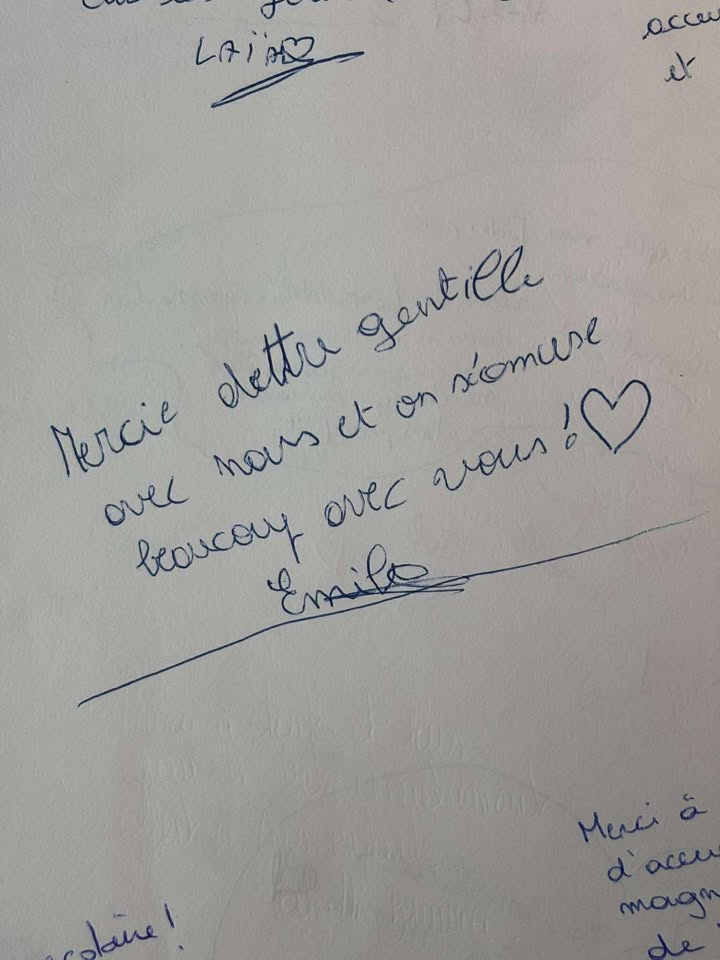 LAÏA
accu
et
Mercie dettre gentille
avec nous et on s'omuse
beaucoup avec vous !
Emila
Merci à
d'accu
magn
de
scolaire !